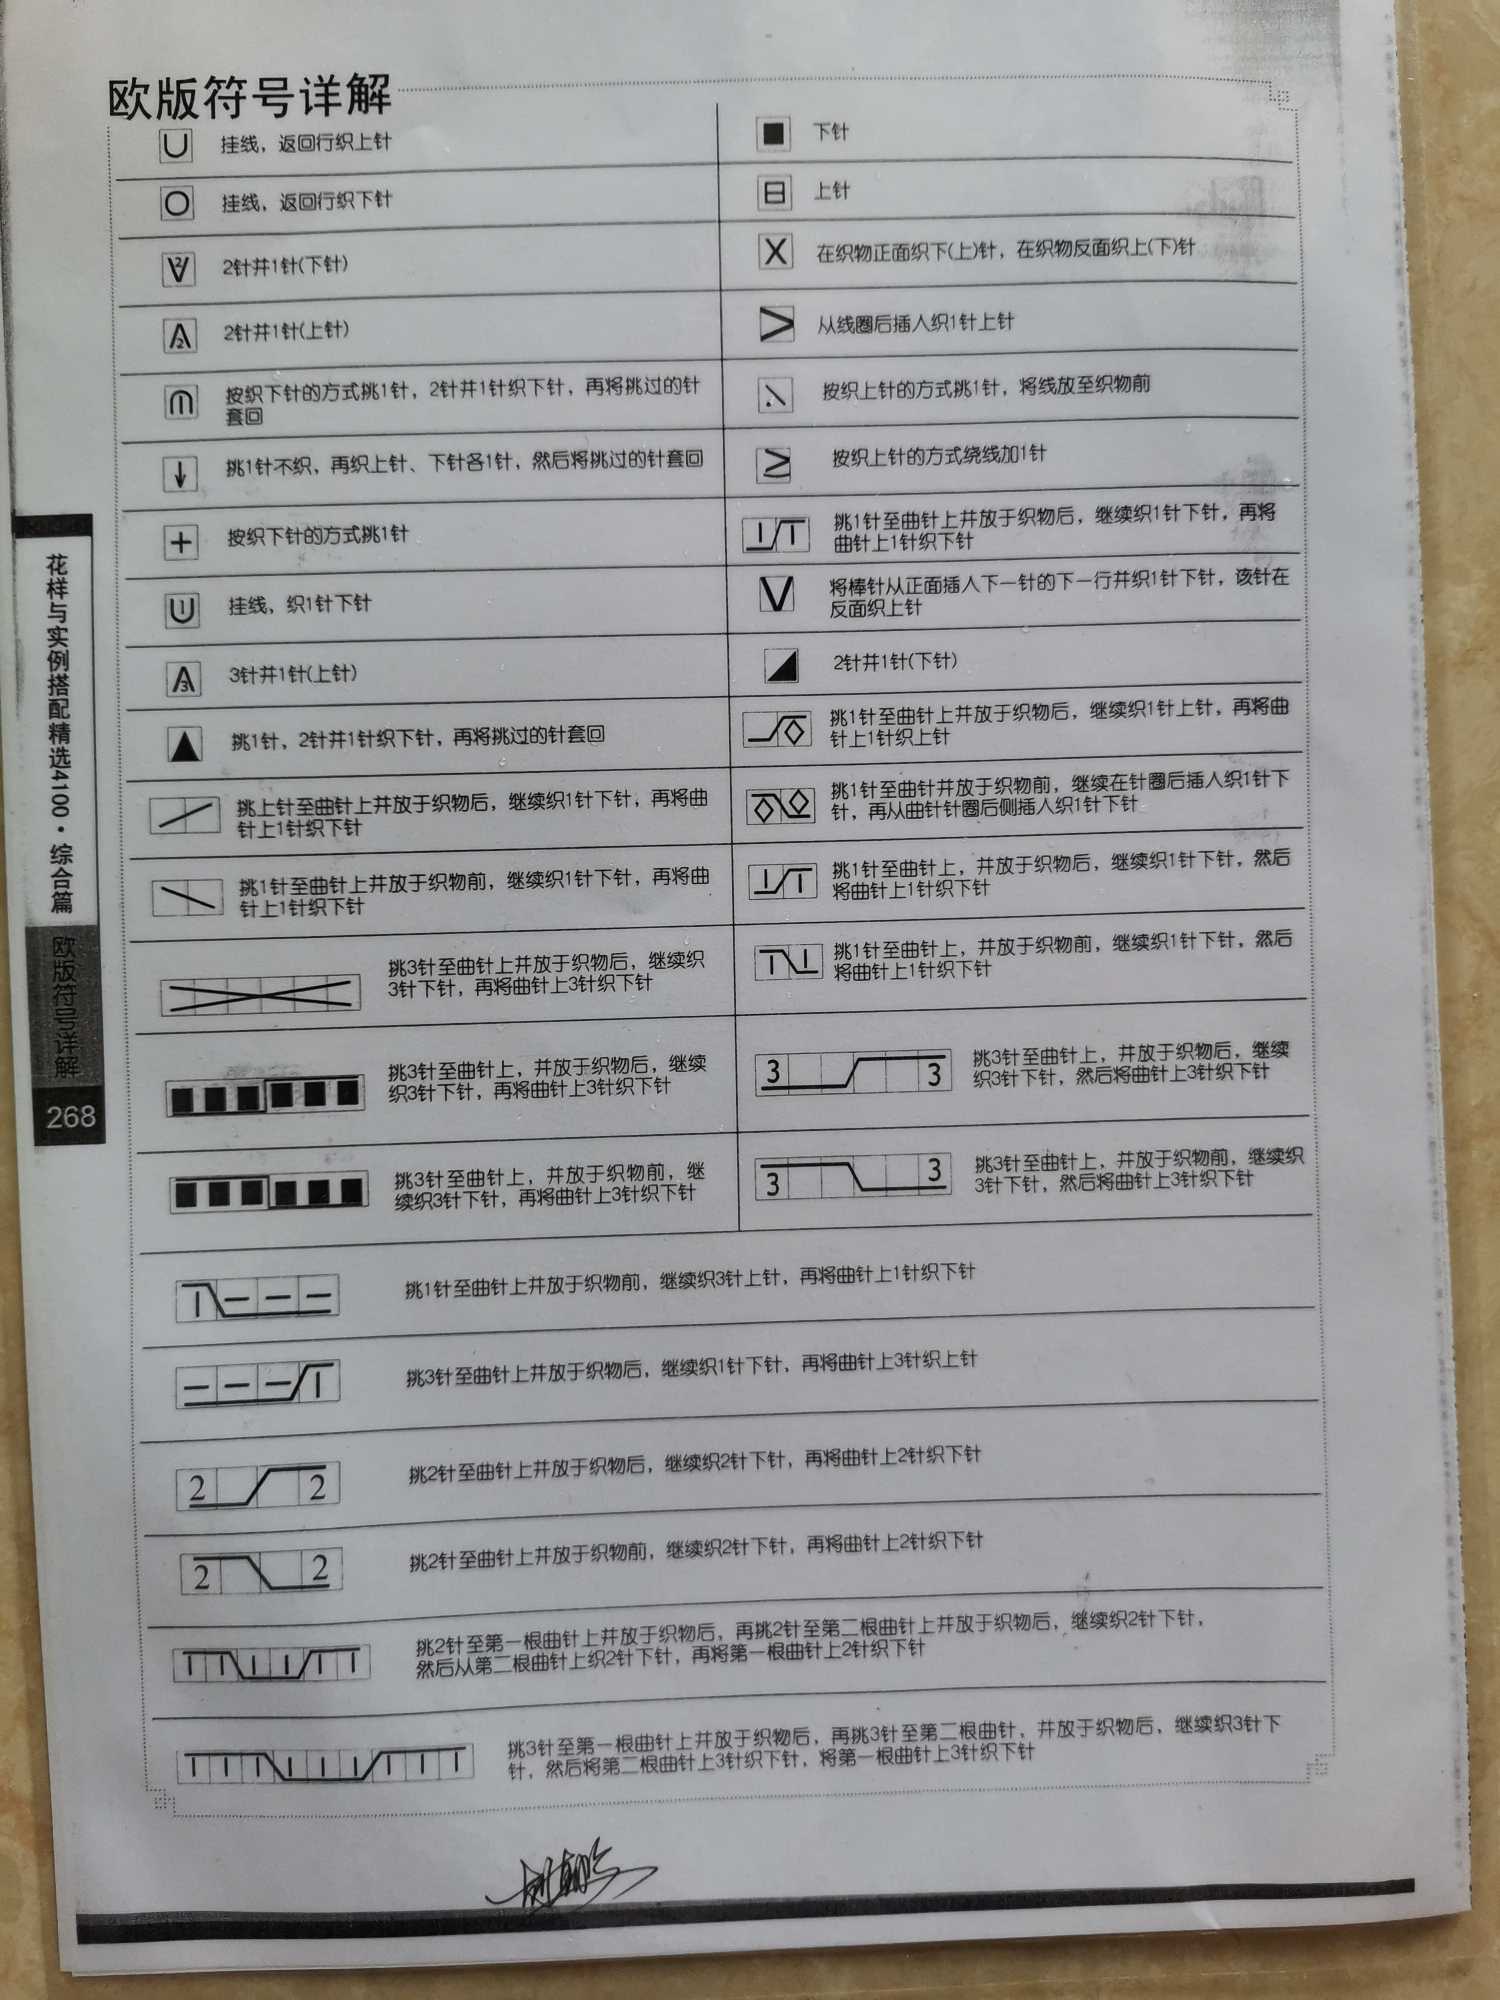 欧版符号详解
挂线，返回行织上针
挂线，返回行织下针
2针并1针(下针)
2针并1针(上针)
按织下针的方式挑1针，2针并1针织下针，再将挑过的针
套回
挑1针不织，再织上针、下针各1针，然后将挑过的针套回
按织下针的方式挑1针
挂线，织1针下针
3针并1针(上针)
挑1针，2针并1针织下针，再将挑过的针套回
挑上针至曲针上并放于织物后，继续织1针下针，再将曲
针上1针织下针
挑1针至曲针上并放于织物前，继续织1针下针，再将曲
针上1针织下针
挑3针至曲针上并放于织物后，继续织
3针下针，再将曲针上3针织下针
挑3针至曲针上，并放于织物后，继续
织3针下针，再将曲针上3针织下针
挑3针至曲针上，并放于织物前，继
续织3针下针，再将曲针上3针织下针
下针
上针
在织物正面织下(上)针，在织物反面织上(下)针
从线圈后插入织1针上针
按织上针的方式挑1针，将线放至织物前
按织上针的方式绕线加1针
挑1针至曲针上并放于织物后，继续织1针下针，再将
曲针上1针织下针
将棒针从正面插入下一针的下一行并织1针下针，该针在
反面织上针
2针并1针(下针)
挑1针至曲针上并放于织物后，继续织1针上针，再将曲
针上1针织上针
挑1针至曲针并放于织物前，继续在针圈后插入织1针下
针，再从曲针针圈后侧插入织1针下针
挑1针至曲针上，并放于织物后，继续织1针下针，然后
将曲针上1针织下针
挑1针至曲针上，并放于织物前，继续织1针下针，然后
将曲针上1针织下针
3 3
挑3针至曲针上，并放于织物后，继续
织3针下针，然后将曲针上3针织下针
3 3
挑3针至曲针上，并放于织物前，继续织
3针下针，然后将曲针上3针织下针
挑1针至曲针上并放于织物前，继续织3针上针，再将曲针上1针织下针
挑3针至曲针上并放于织物后，继续织1针下针，再将曲针上3针织上针
2 2
挑2针至曲针上并放于织物后，继续织2针下针，再将曲针上2针织下针
2 2
挑2针至曲针上并放于织物前，继续织2针下针，再将曲针上2针织下针
挑2针至第一根曲针上并放于织物后，再挑2针至第二根曲针上并放于织物后，继续织2针下针，
然后从第二根曲针上织2针下针，再将第一根曲针上2针织下针
挑3针至第一根曲针上并放于织物后，再挑3针至第二根曲针，并放于织物后，继续织3针下
针，然后将第二根曲针上3针织下针，将第一根曲针上3针织下针
花样与实例搭配精选4100·综合篇
欧版符号详解
268